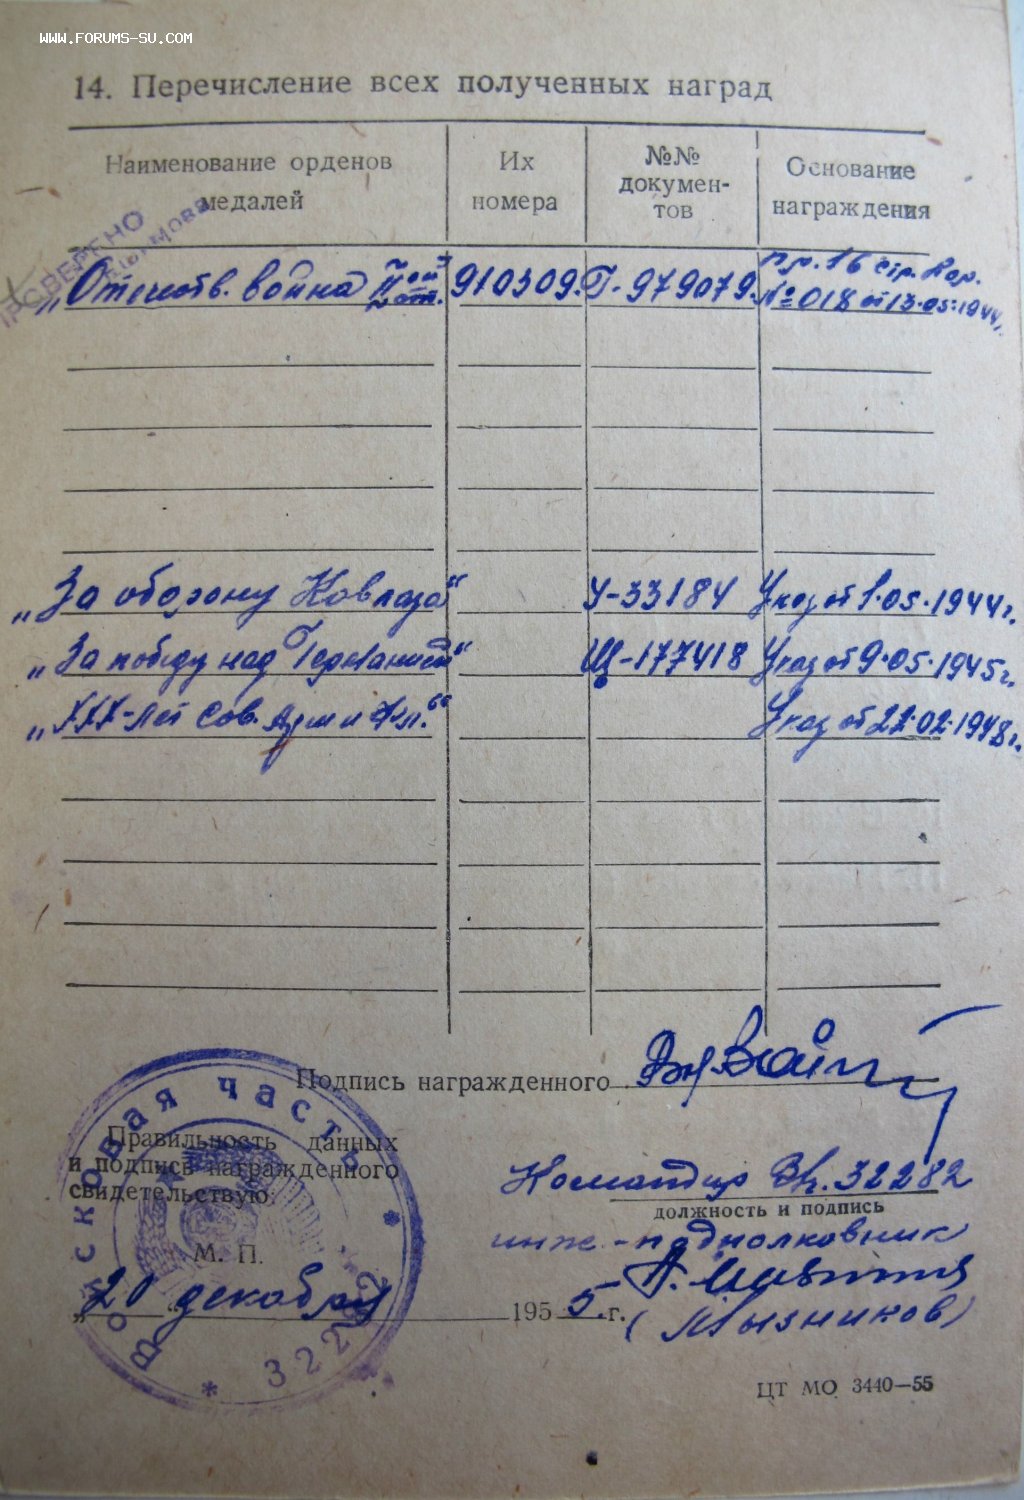 WWW.FORUMS-SU.COM
14. Перечисление всех полученных наград
Наименование орденов медалей
Их номера
№№ докумен-тов
Основание награждения
СВЕРЕНО
„Отечеств. война II ст. 910309. Г-979079. Пр. 16 стр. кор. №018 от 13.05.1944г.
„За оборону Кавказа“ У-33184 Указ от 1.05.1944г.
„За победу над Германией“ Щ-177418 Указ от 9.05.1945г.
„XXX-лет Сов. Арм и Фл.“ Указ от 22.02.1948г.
Подпись награжденного
Правильность данных
и подпись награжденного
свидетельствую:
Командир в/ч. 32282
должность и подпись
инж.-подполковник
М. П.
„20 декабря 1955 г.
(Мызников)
Войсковая часть * 32282 *
ЦТ МО 3440—55